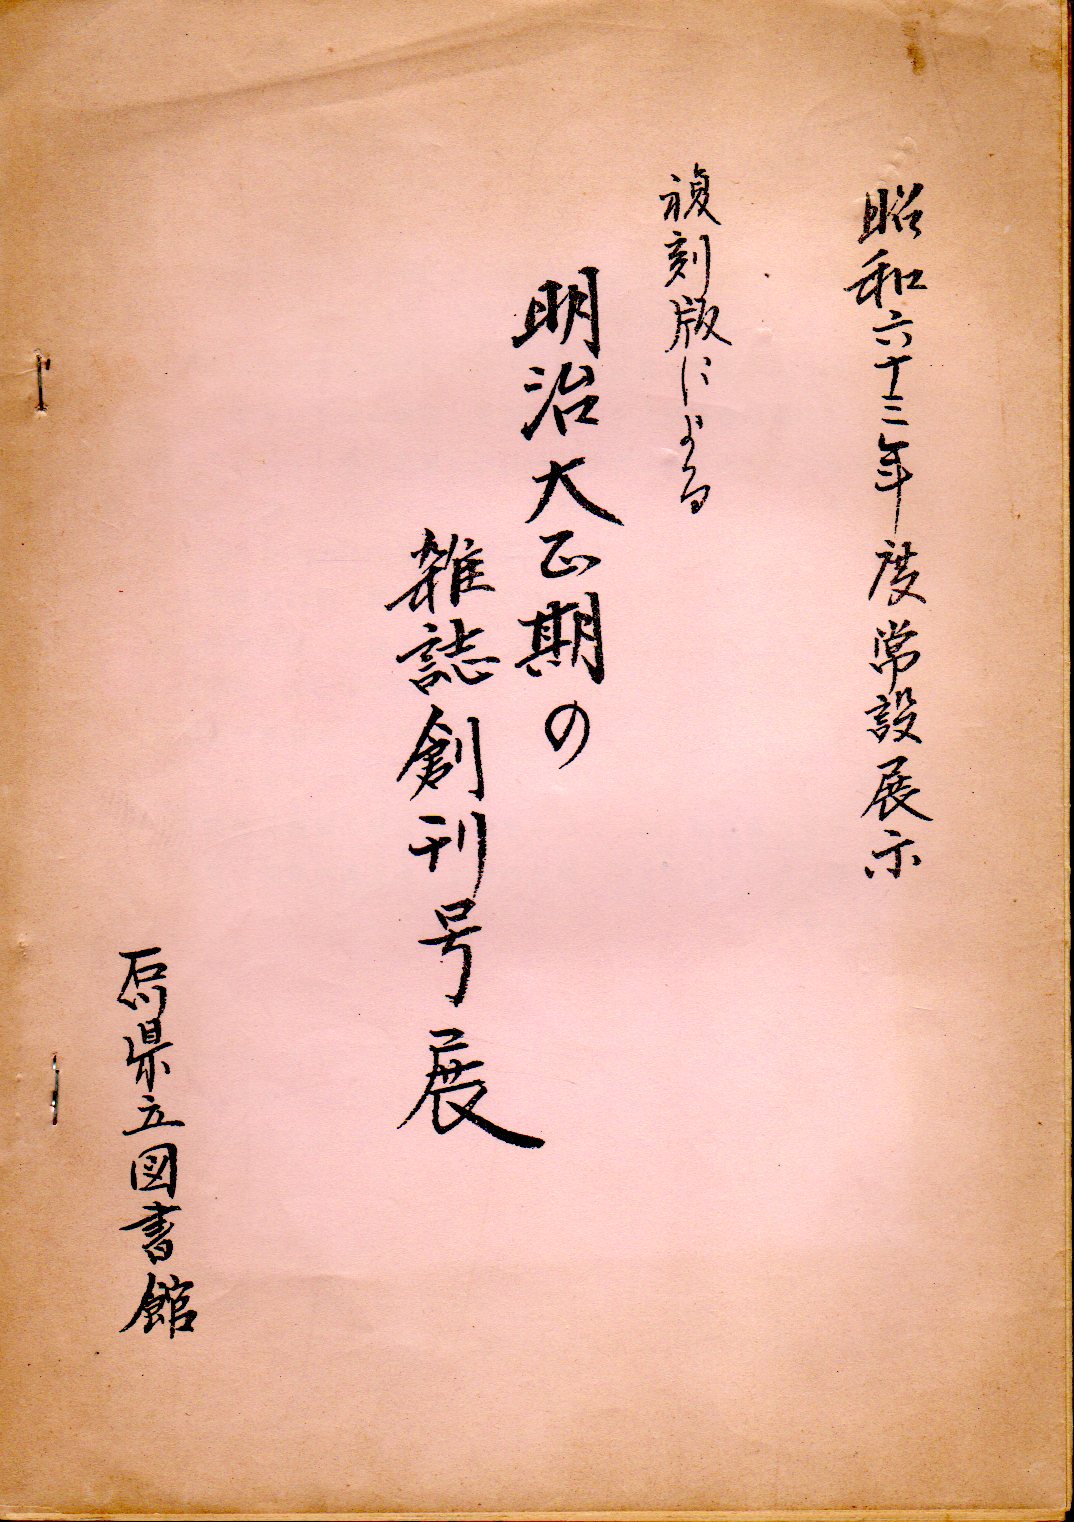 昭和六十三年度常設展示
複刻版による
明治大正期の
雑誌創刊号展
石川県立図書館